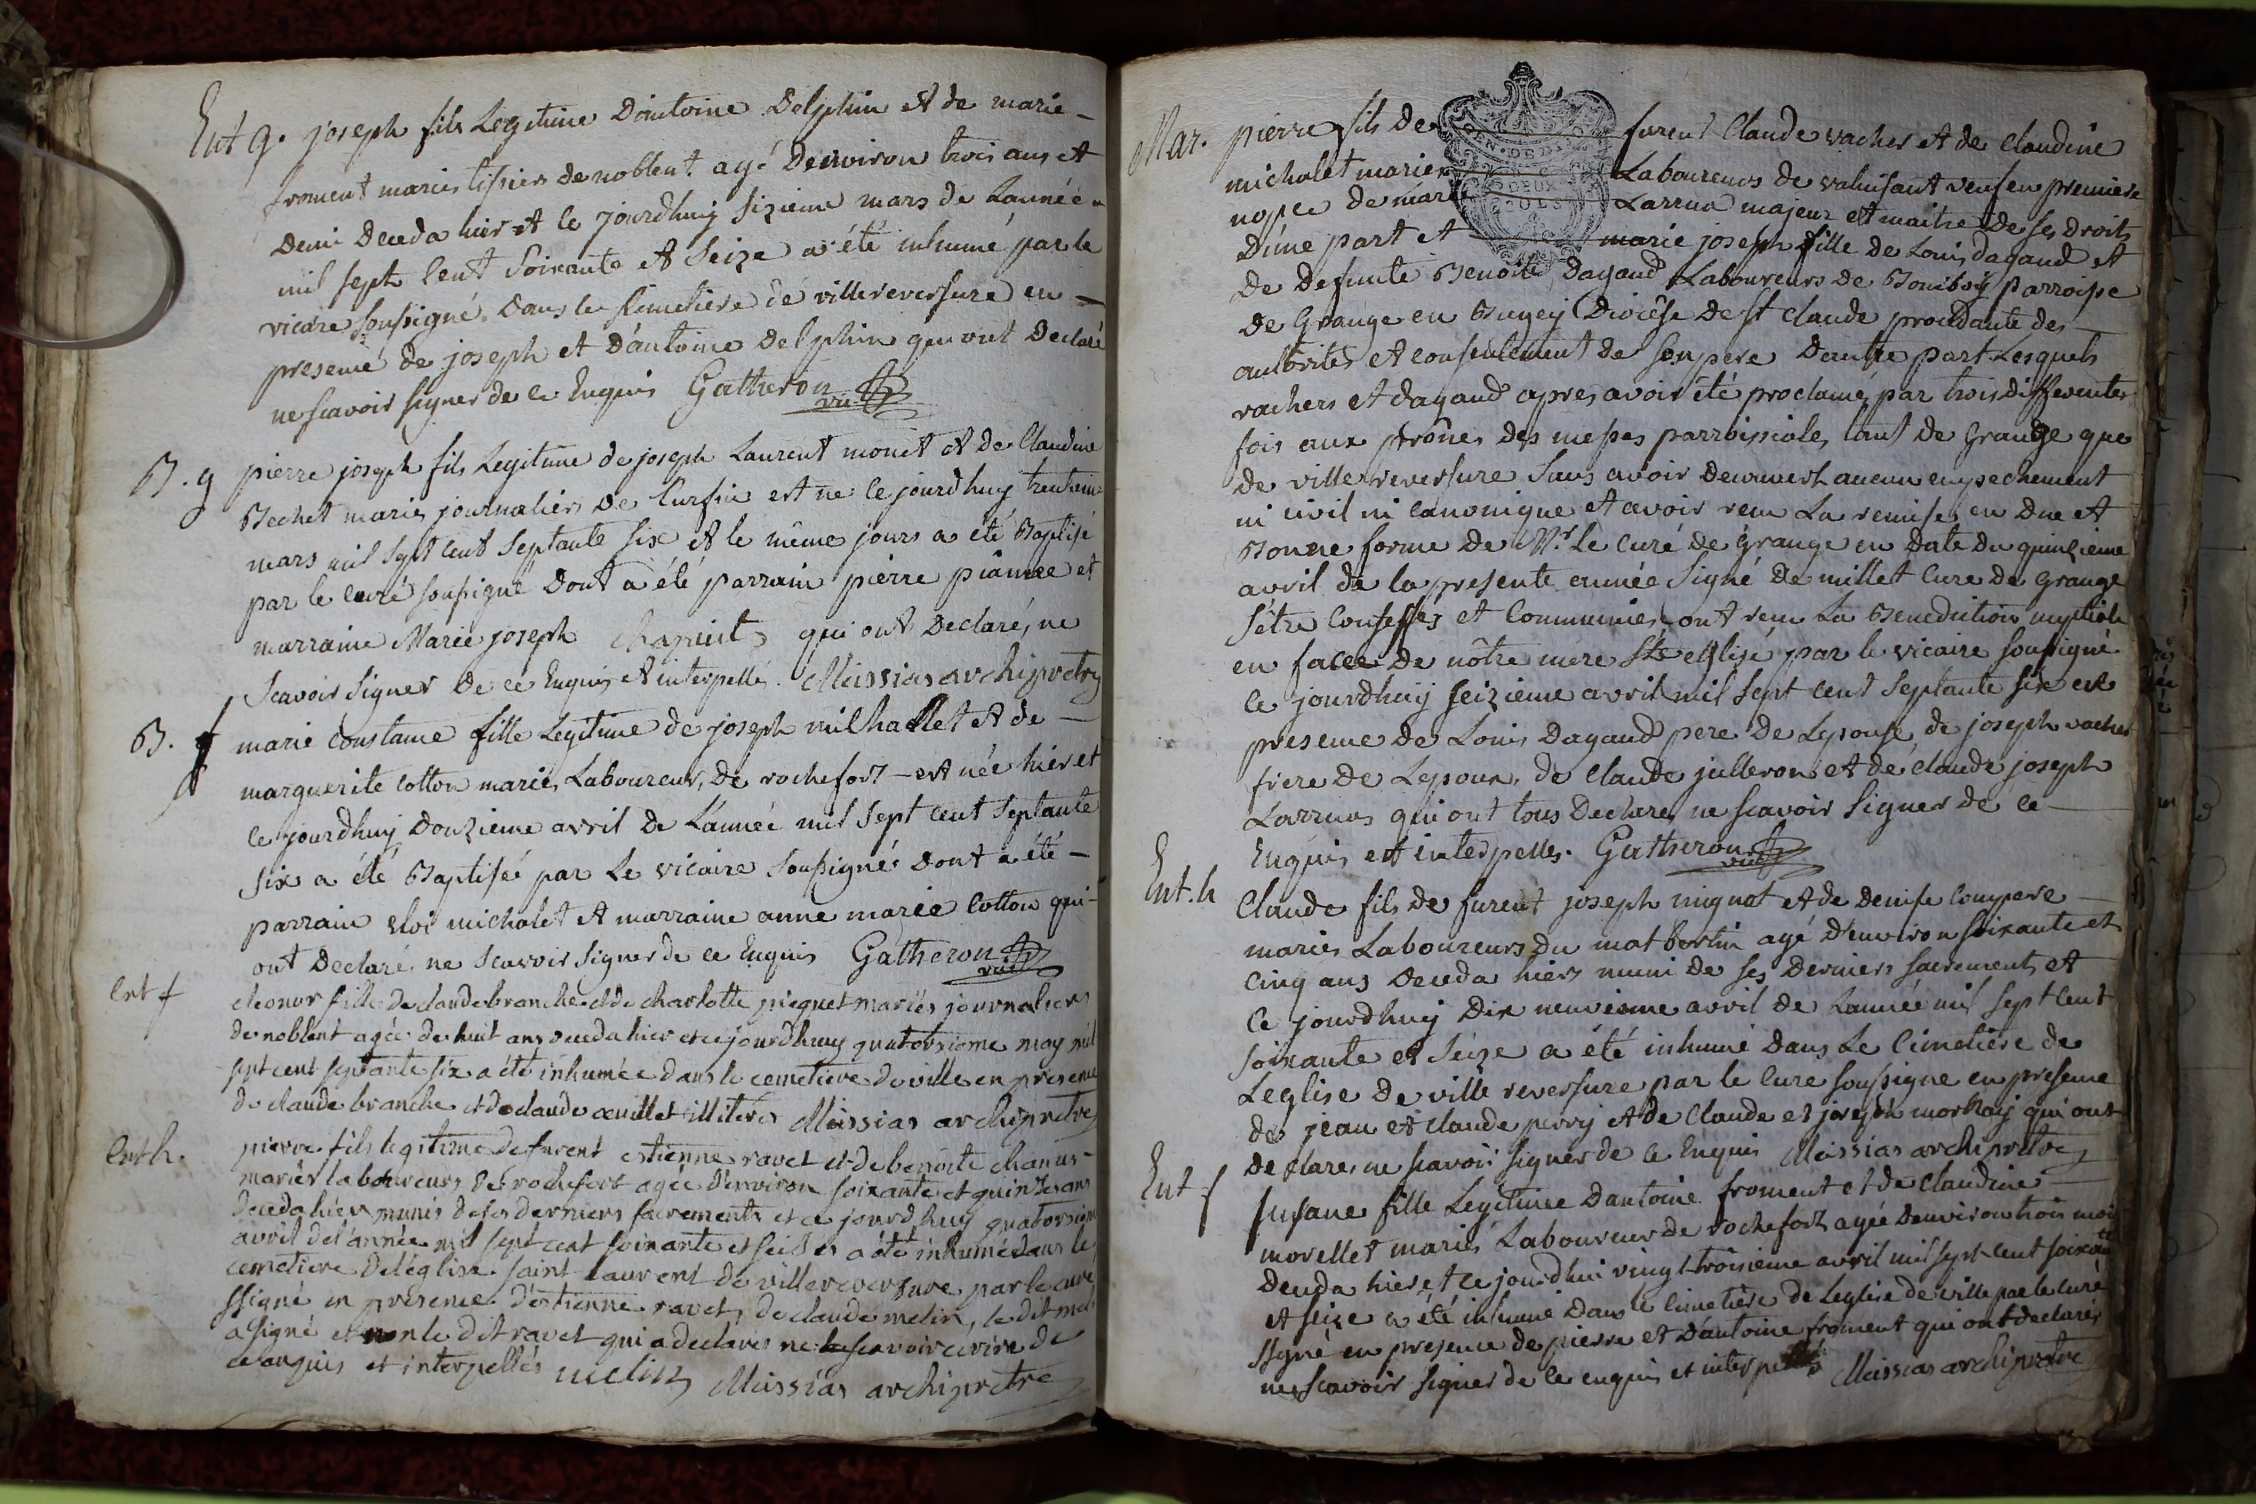 Ent g. joseph fils Legitime Dantoine Delphin et de marie
froment mariés tissiers de noblent agé Denviron trois ans et
Demi Deceda hier et le jourdhuy sizieme mars de Lannéé
mil sept Cent Soixante et Seize a été inhumé par le
vicaire soussigné Dans le Cimetiere de villereversure en
presence de joseph et Dantoine Delphin qui ont Declaré
ne scavoir signer de ce Enquis Gatheron vic
B. g pierre joseph fils Legitime de joseph Laurent monet et de Claudine
Bechet mariés journaliers de est né le jourdhuy trentieme
mars mil sept cent septante six et le même jours a été Baptisé
par le curé soussigné Dont a été parrain pierre et
marraine Marie joseph Chapuit qui ont Declaré ne
Scavoir signer De ce Enquis et interpellé. Massias archipretre
B. f marie constance fille Legitime de joseph milhallet et de
marguerite cotton mariés Laboureurs De rochefort est née hier et
ce jourdhuy Douzieme avril de L'annéé mil sept cent septante
six a été Baptisée par Le vicaire soussigné Dont a été
parrain Eloi michalet et marraine anne marie Cotton qui
ont Declaré ne scavoir signer de ce Enquis Gatheron vic
ent f eleonor fille de claude branche et de charlotte piquet mariés journaliers
de noblent agée de huit ans deceda hier et ce jourdhuy quatorsieme may mil
sept cent septante six a été inhumée dans le cemetiere de ville en presence
de claude branche et de claude œuillet illiteres Massias archipretre
ent h. pierre fils legitime de furent estienne ravet et de benoite chanus
mariés laboureurs de rochefort agée d'environ soixante et quinze ans
deceda hier munis de ses derniers sacrements et ce jourdhuy quatorsieme
avril de l'année mil sept cent soixante et seises a été inhumé dans le
cemetiere de l'église saint laurent de villereversure par le curé
ssigné en présence d'estienne ravet, de claude melin, le dit melin
a signé et non le dit ravet qui a declaré ne scavoir écrire de
ce enquis et interpellés melin Massias archipretre
Mar. pierre fils de furent Claude vacher et de Claudine
michalet mariés Laboureurs de valuisant veuf en premiere
nopce de marie Larrua majeur et maitre de ses droits
D'une part et marie joseph fille de Louis dagaud et
De Defunte Benoite Dagaud Laboureurs de parroisse
De Grange en Bugey Diocêse De St claude procedante des
authorités et consentement de son pere Dautre part Lesquels
vachers et dagaud apres avoir été proclamé par trois differentes
fois aux prônes des messes parroissiales tant de Grange que
de ville reversure sans avoir decouvert aucun empechement
ni civil ni canonique et avoir reçu La remise en Due et
Bonne forme de Mr. Le curé de Grange en Date du quinzieme
avril de la presente année Signé De millet Curé de Grange
s'être Confessés et Communiés ont reçu La Benediction nuptiale
en face De nôtre mere Ste eglise par le vicaire soussigné
ce jourdhuy seizieme avril mil sept cent septante six en
presence de Louis Dagaud pere De Lepouse de joseph vacher
frere de Lepoux, de Claude julleron et de claude joseph
Larruas qui ont tous Declaré ne scavoir signer de ce
Enquis et interpelles. Gatheron vic
Ent. h Claude fils de furent joseph mignot et de Denise Compere
mariés Laboureurs Du mat bertin agé d'environ soixante et
cinq ans Deceda hiers muni de ses Derniers sacrements et
ce jourdhuy Dix neuvieme avril de Lannée mil sept cent
soixante et seize a été inhumé Dans Le Cimetiere de
Leglise De ville reversure par le Curé soussigné en presence
de jean et claude perry et de Claude et joseph qui ont
Declarés ne scavoir signer de ce Enquis Massias archipretre
Ent f susane fille Legitimee Dantoine froment et de Claudine
morellet mariés Laboureur de rochefort agée Denviron trois mois
Deceda hier et ce jourdhui vingt troisieme avril mil sept cent soixante
et seize a été inhumé Dans le Cimetiere de Leglise de ville par le curé
ssigné en presence de pierre et D'antoine froment qui ont declarés
ne scavoir signer de ce enquis et interpellé Massias archipretre